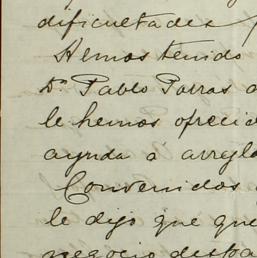 dificultades
Hemos tenido
Dn Pablo Porras
le hemos ofrecid
ayuda a arregla
Convenidos
le dijo que que
negocio